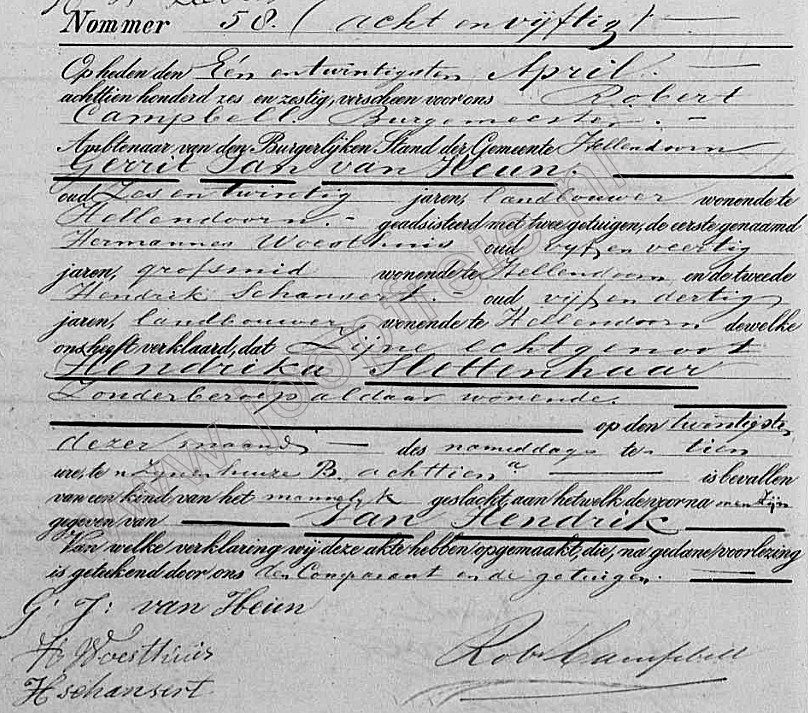 Nommer 58. (acht en vijftig)
Op heden den Eén en twintigsten April.
achttien honderd zes en zestig, verscheen voor ons Robert
Campbell Burgemeester.
Ambtenaar van den Burgerlijken Stand der Gemeente Hellendoorn
Gerrit Jan van Heun.
oud Zes en twintig jaren, landbouwer wonende te
Hellendoorn. geadsisteerd met twee getuigen, de eerste genaamd
Hermannes Woesthuis oud vijf en veertig
jaren, grofsmid wonende te Hellendoorn en de tweede
Hendrik Schansert. oud vijf en dertig
jaren, landbouwer, wonende te Hellendoorn dewelke
ons heeft verklaard, dat Zijne echtgenoot
Hendrika Slettenhaar
Zonder beroep aldaar wonende.
op den twintigsten
dezer maand des namiddags te tien
ure, te n Zijnen huize B. achttien a is bevallen
van een kind van het mannelijk geslacht, aan hetwelk de voorna men zijn
gegeven van Jan Hendrik
Van welke verklaring wij deze akte hebben opgemaakt, die, na gedane voorlezing
is geteekend door ons den Comparant en de getuigen.
G. J. van Heun
H Woesthuis
Rob Campbell
H schansert
www.joopfreis.nl